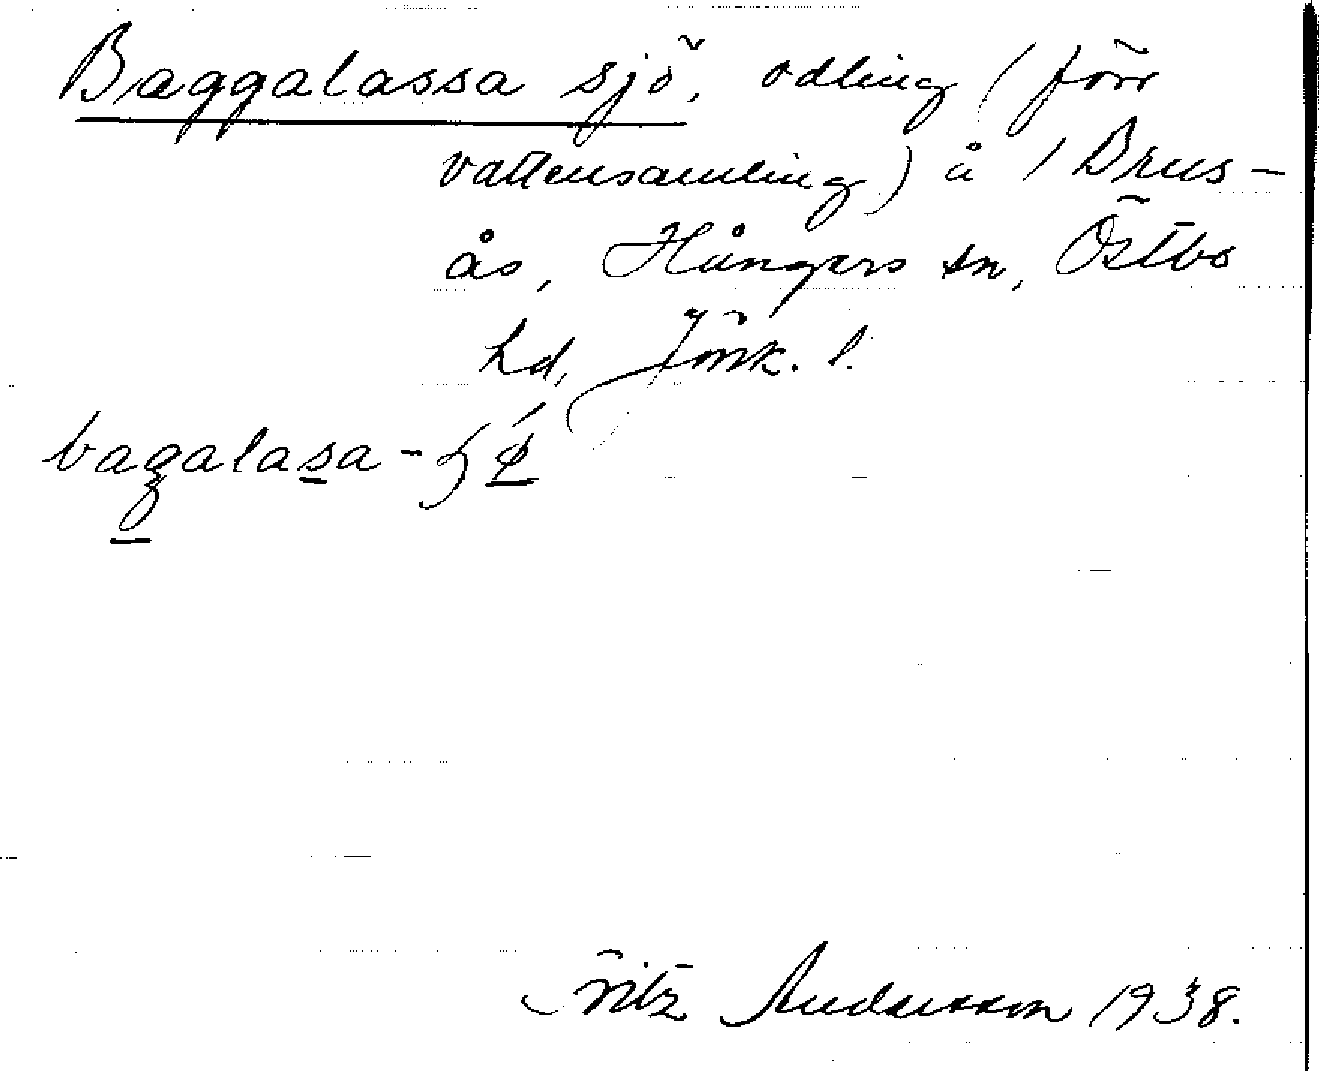 Baggalassa sjö, odling (förr
vattensamling) å / Brus-
ås, Hångers sn, Östbo
hd, Jönk. l.
bagalasa-
Fritz Andersson 1938.